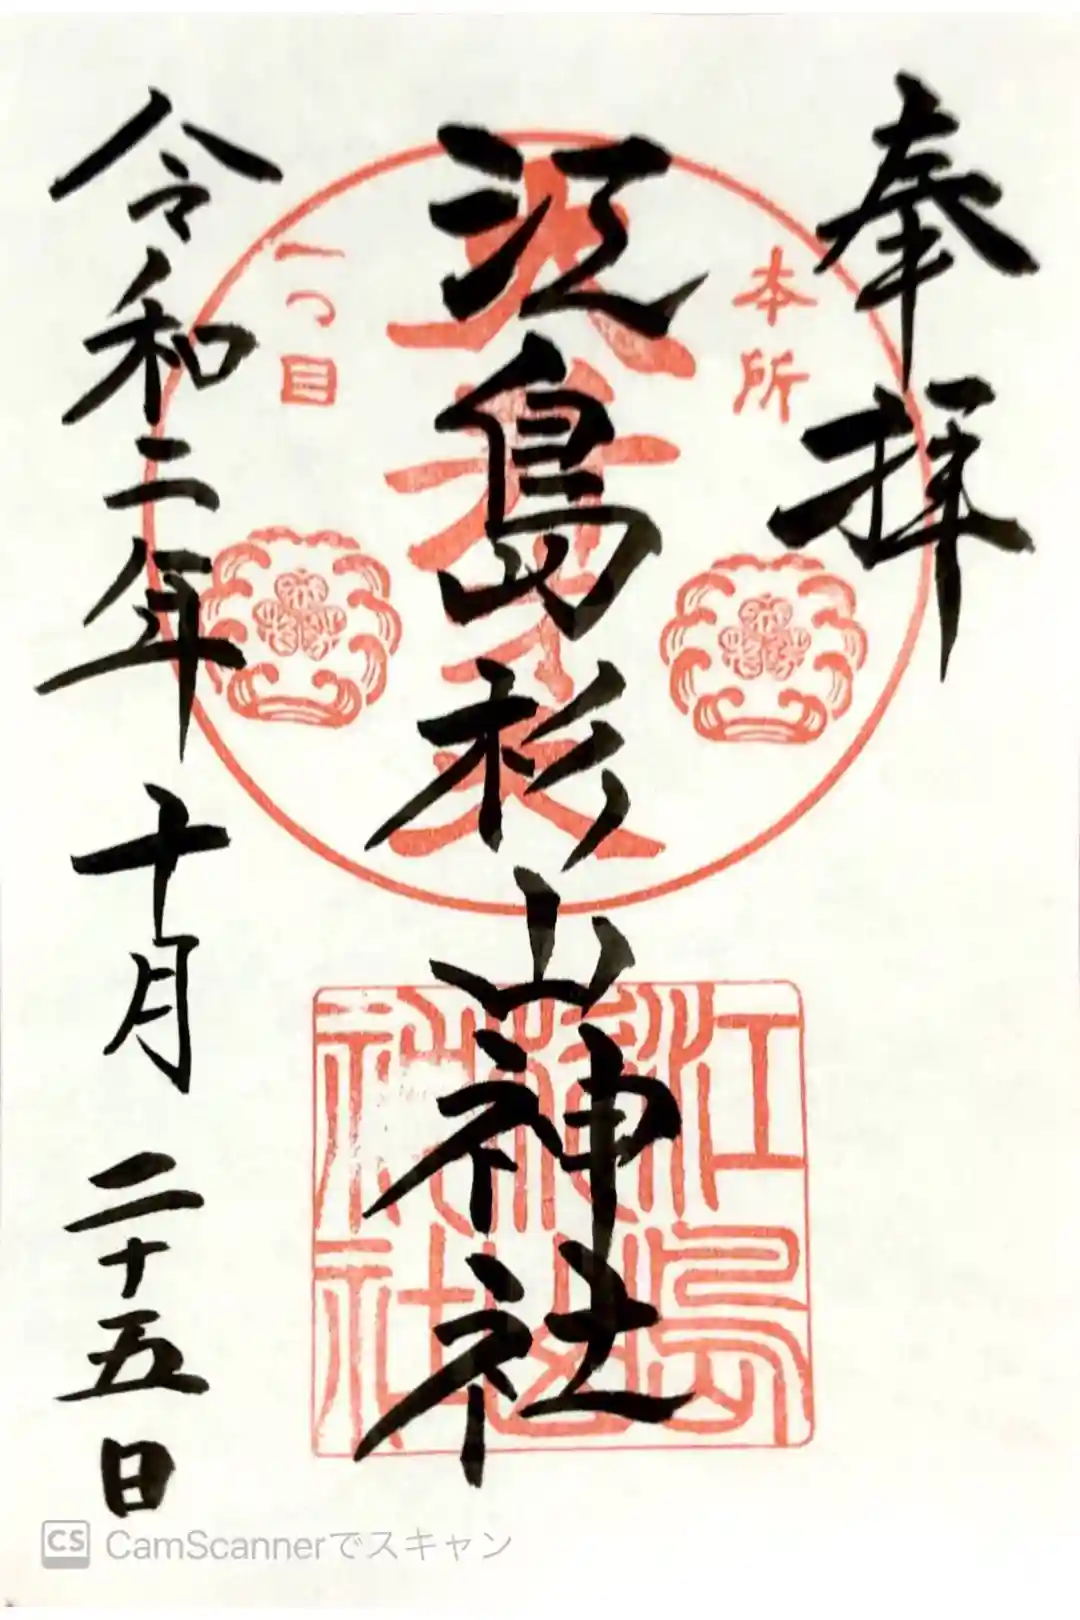 奉拝
本所
江島杉山神社
一つ目
令和二年十月二十五日
江島
杉山
神社
CS CamScannerでスキャン